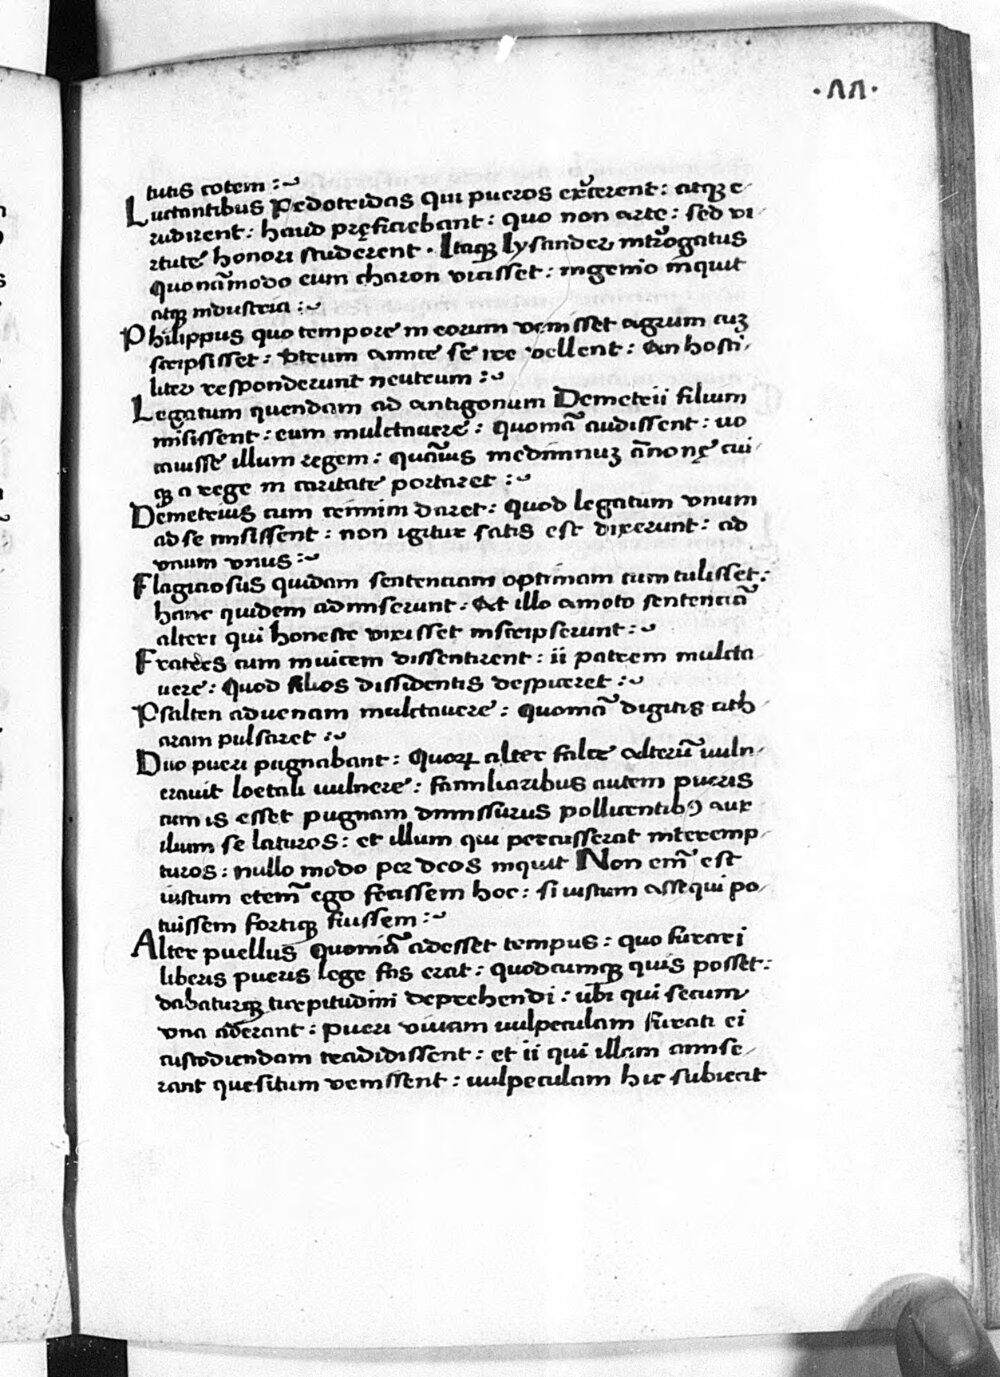 ·77·
tutis cotem :~
Luctantibus Pedotridas qui pueros exercerent : atque e-
rudirent : haud pręficiebant : quo non arte : sed vi-
rtute honori studerent · Itaque Lysander interrogatus
Quonā modo eum charon vicisset : ingenio inquit
atque industria :~
Philippus quo tempore in eorum venisset agrum cuʒ
scripsisset : vtrum amice se ire vellent : An hosti-
liter responderunt neutrum :~
Legatum quendam ad antigonum Demetrii filium
misissent : eum mulctavere : Quoniā audissent : uo
cauisse illum regem : quāuis medimnuʒ ānonę cui-
que a rege in caritate portaret :~
Demetrius cum crimini daret : quod legatum vnum
ad se misissent : non igitur satis est dixerunt : ad
vnum vnus :~
Flagiciosus quidam sentenciam optimam cum tulisset :
hanc quidem admiserunt : At illo amoto sentenciā
alteri qui honeste vixisset inscripserunt :~
Fratres cum inuicem dissentirent : ii patrem mulcta
uere : Quod filios dissidentis despiceret :~
Psalten aduenam mulctauere : quoniā digitis cith-
aram pulsaret :~
Duo pueri pugnabant : Quorum alter falce alterū uuln-
erauit loetali uulnere : familiaribus autem pueris
cum is esset pugnam dimissurus pollicentibꝰ aux-
ilium se laturos : et illum qui percusserat interemp-
turos : nullo modo per deos inquit Non enī est
iustum etenī ego fecissem hoc : si iustum assequi po-
tuissem fortique fuissem :~
Alter puellus Quoniā adesset tempus : quo furari
liberis pueris lege fas erat : quodcumque quis posset :
dabaturque turpitudini deprehendi : ubi qui secum
vna aderant : pueri viuam uulpeculam furati ei
custodiendam tradidissent : et ii qui illam amise-
rant quesitum venissent : uulpeculam hic subiecit